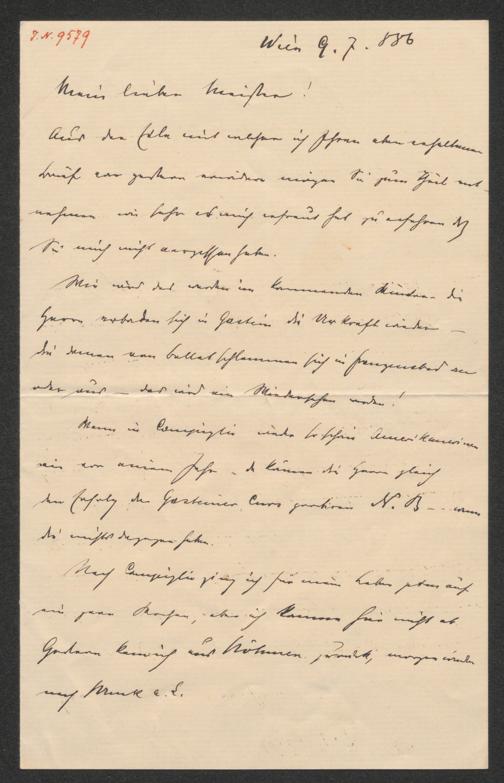 J.N. 9579
Wien 9. 7. 886
Mein lieber Meister!
Aus der Eile mit welcher ich Ihren eben erhaltenen
Brief von gestern erwidere mögen Sie zum Theil ent-
nehmen wie sehr es mich erfreut hat zu erfahren daß
Sie mich nicht vergessen haben.
Wie wird das werden im kommenden Winter – die
Herrn erbaden sich in Gastein die Urkraft wieder –
die Damen vom Ballet schlammen sich in Franzensbad an
oder aus – das wird ein Wiedersehen werden!
Wenn in Campiglio wieder so schöne Amerikanerinen
wie vor einem Jahr – da können die Herrn gleich
den Erfolg der Gasteiner Cur probiren N.B. – wenn
die nichts dagegen haben.
Nach Campiglio ging ich für mein Leben gern auf
ein paar Wochen, aber ich komme hier nicht ab
Gestern kam ich aus Böhmen zurück, morgen wieder
nach a. L.